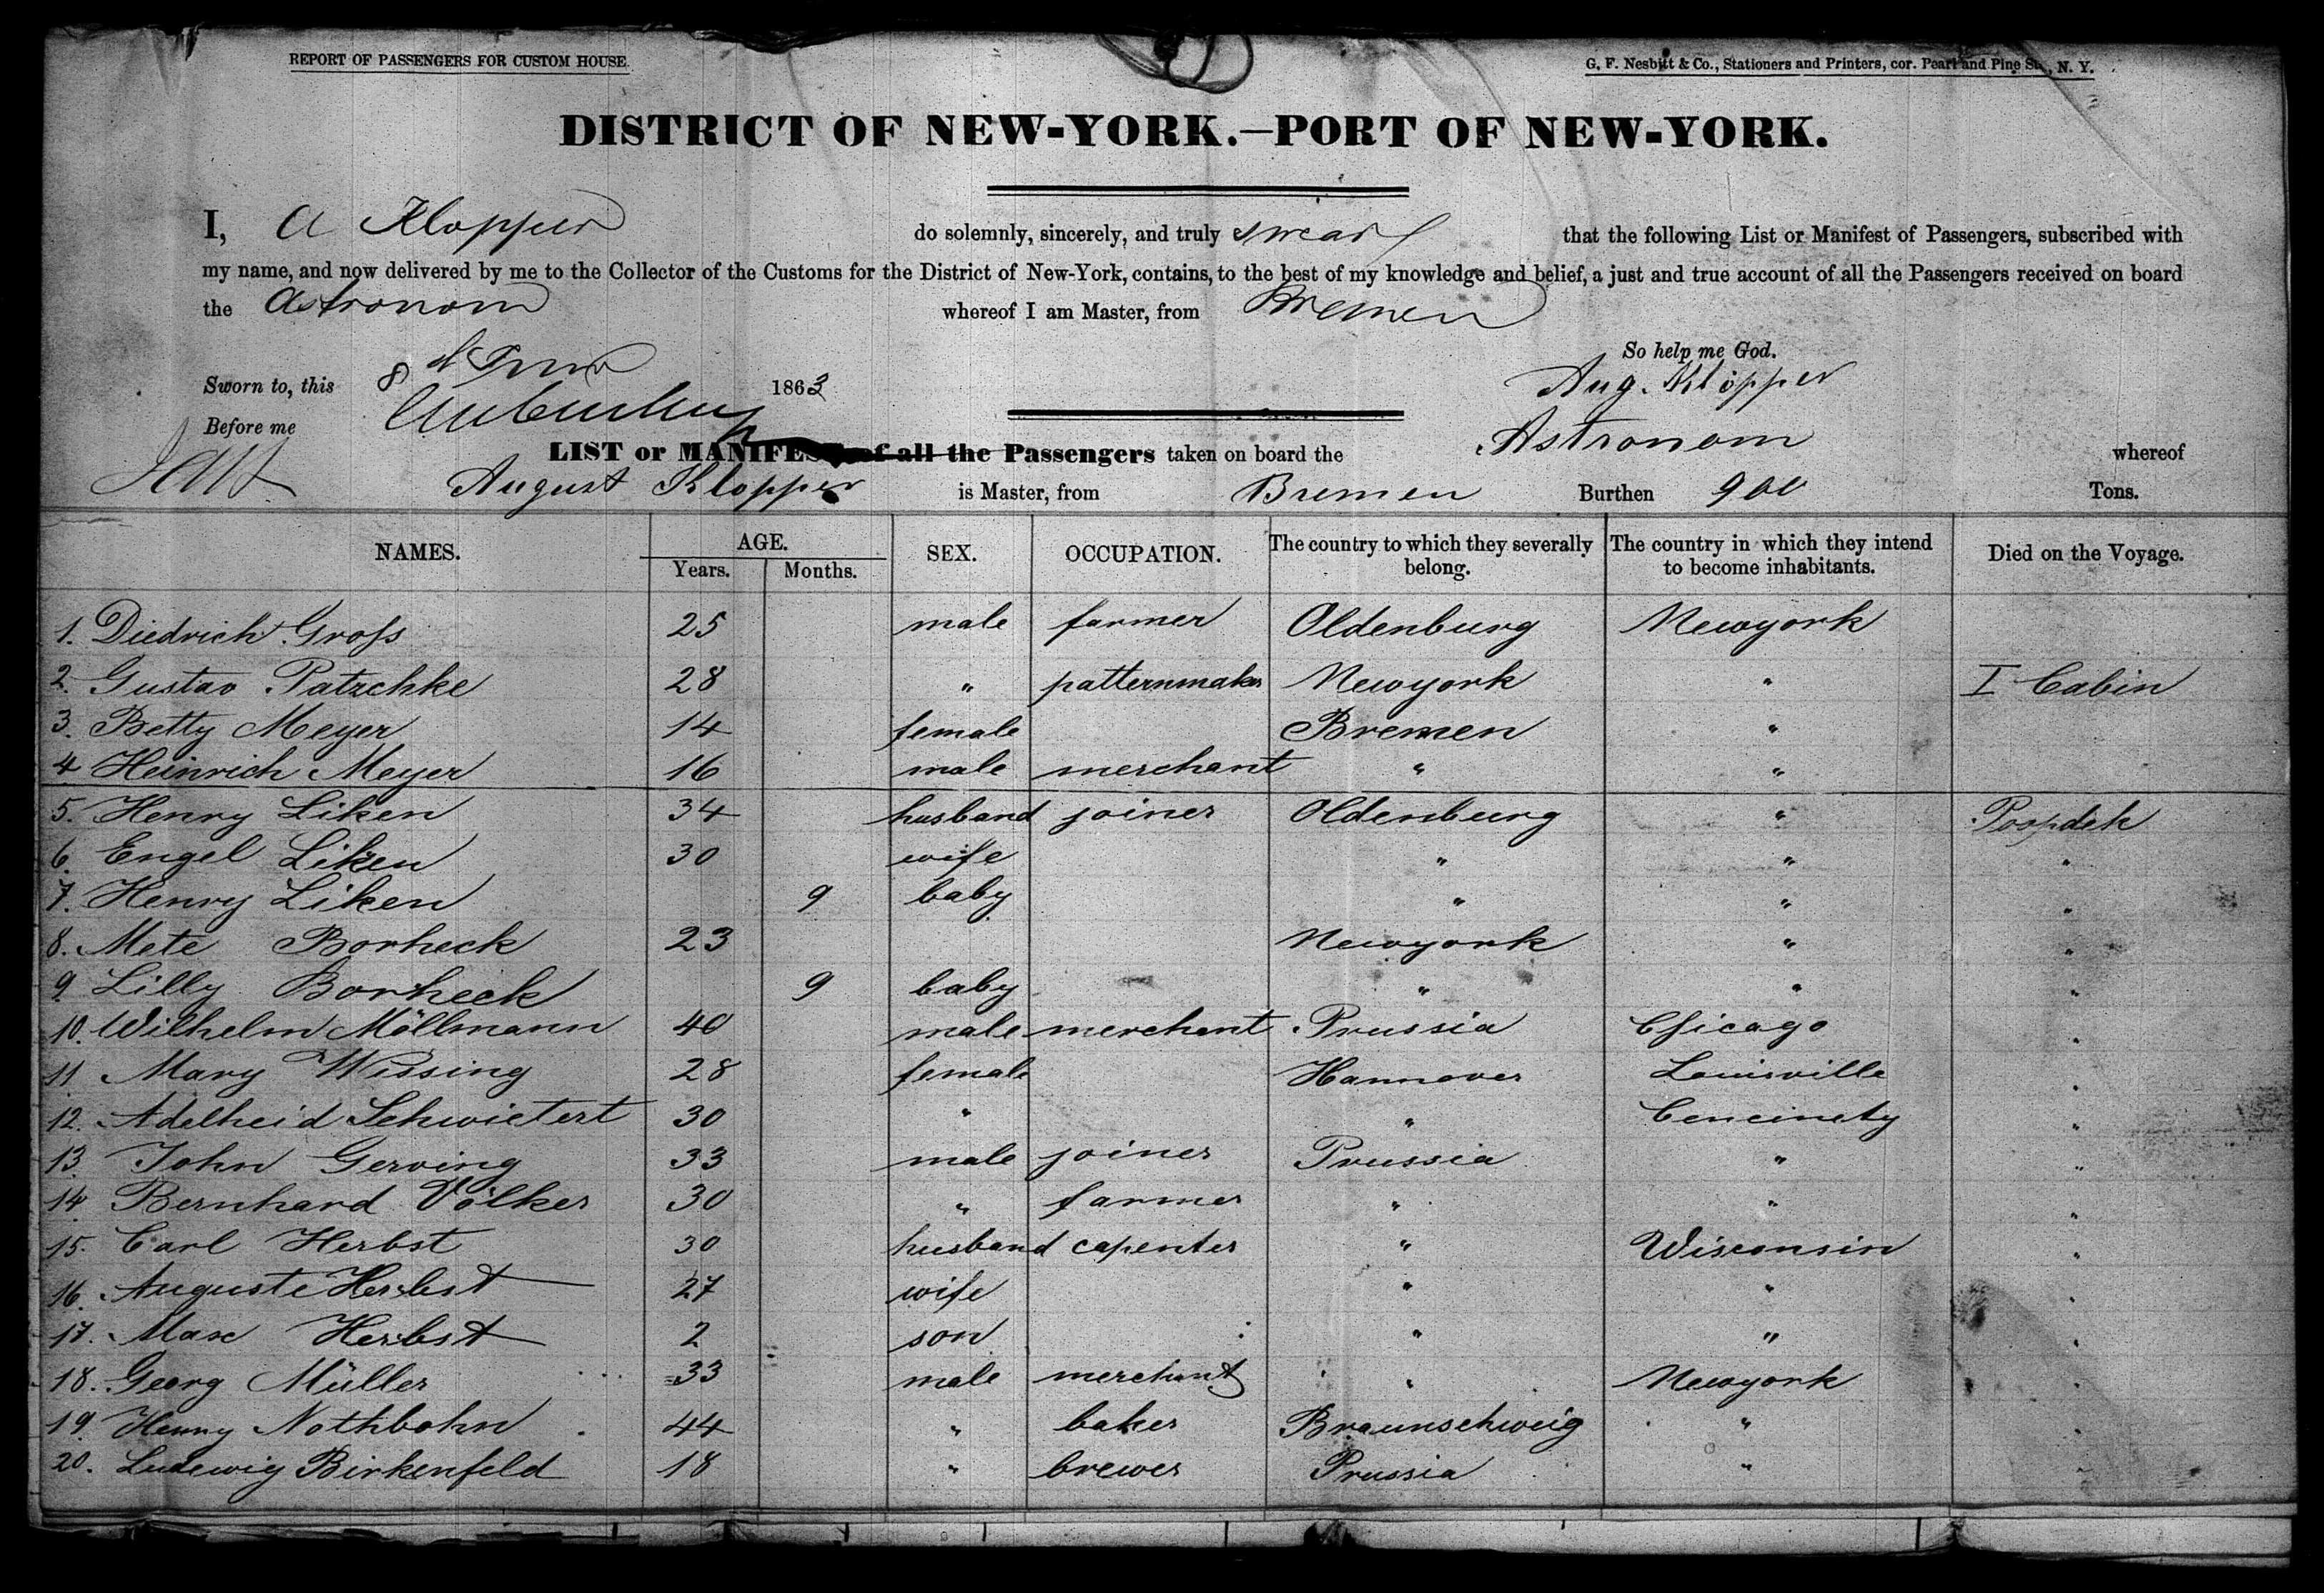 REPORT OF PASSENGERS FOR CUSTOM HOUSE.
G. F. Nesbitt & Co., Stationers and Printers, cor. Pearl and Pine Sts., N. Y.
DISTRICT OF NEW-YORK.—PORT OF NEW-YORK.
I, A Klopper do solemnly, sincerely, and truly swear that the following List or Manifest of Passengers, subscribed with
my name, and now delivered by me to the Collector of the Customs for the District of New-York, contains, to the best of my knowledge and belief, a just and true account of all the Passengers received on board
the Astronom whereof I am Master, from Bremen
So help me God.
Sworn to, this 8 1863 Aug. Klöpper
Before me
LIST or MANIFEST of all the Passengers taken on board the Astronom whereof
August Klopper is Master, from Bremen Burthen 900 Tons.
NAMES. AGE. Years. Months. SEX. OCCUPATION. The country to which they severally belong. The country in which they intend to become inhabitants. Died on the Voyage.
1. Diedrich Groſs 25 male farmer Oldenburg Newyork
2. Gustav Patzchke 28 " patternmaker Newyork " I Cabin
3. Betty Meyer 14 female Bremen "
4 Heinrich Meyer 16 male merchant " "
5. Henry Liken 34 husband joiner Oldenburg " Poopdek
6. Engel Liken 30 wife " " "
7. Henry Liken 9 baby " " "
8. Mete Borheck 23 Newyork " "
9. Lilly Borheck 9 baby " " "
10. Wilhelm Möllmann 40 male merchant Prussia Chicago "
11 Mary Wissing 28 female Hannover Louisville "
12. Adelheid Schwietert 30 " " Cencinety "
13. John Gerving 33 male joiner Prussia " "
14. Bernhard Völker 30 " farmer " " "
15. Carl Herbst 30 husband capenter " Wisconsin "
16. Auguste Herbst 27 wife " " "
17. Max Herbst 2 son " " "
18. Georg Müller 33 male merchant " Newyork "
19. Henry Nothbohn 44 " baker Braunschweig " "
20. Ludewig Birkenfeld 18 " brewer Prussia " "